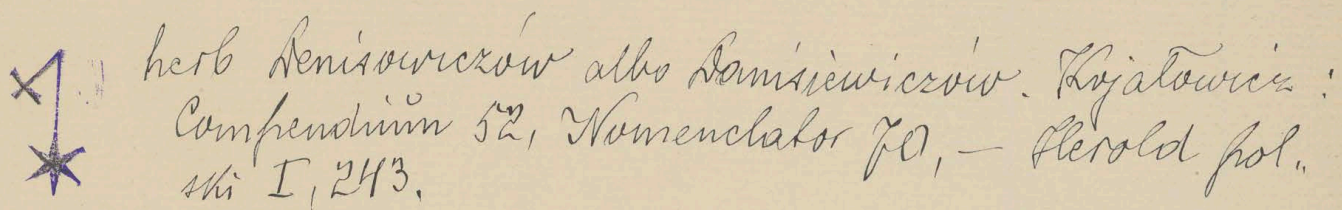 herb Denisowiczów albo Danisiewiczów. Kojałowicz:
Compendiům 52, Nomenclator 70, — Herold pol„
ski I, 243.